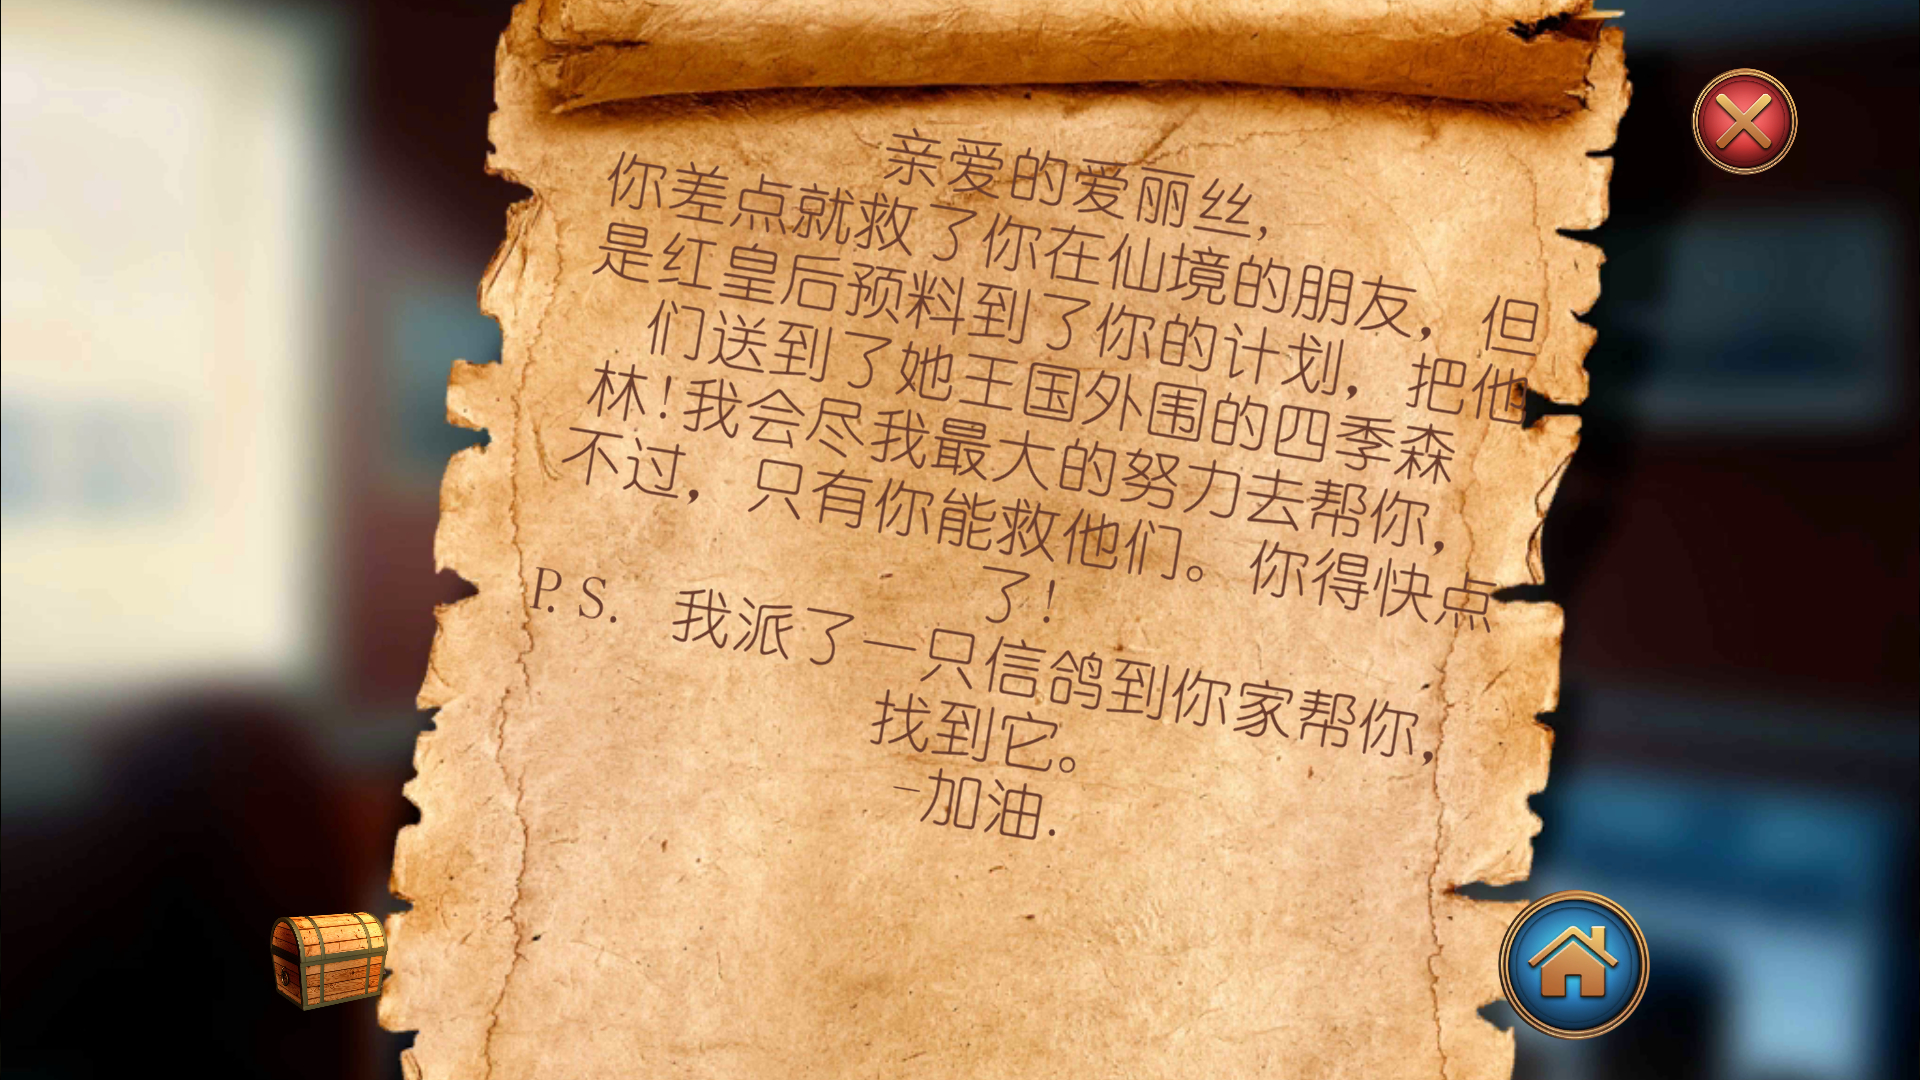 亲爱的爱丽丝,
你差点就救了你在仙境的朋友，但
是红皇后预料到了你的计划，把他
们送到了她王国外围的四季森
林！我会尽我最大的努力去帮你，
不过，只有你能救他们。你得快点
了！
P.S. 我派了一只信鸽到你家帮你,
找到它。
-加油.